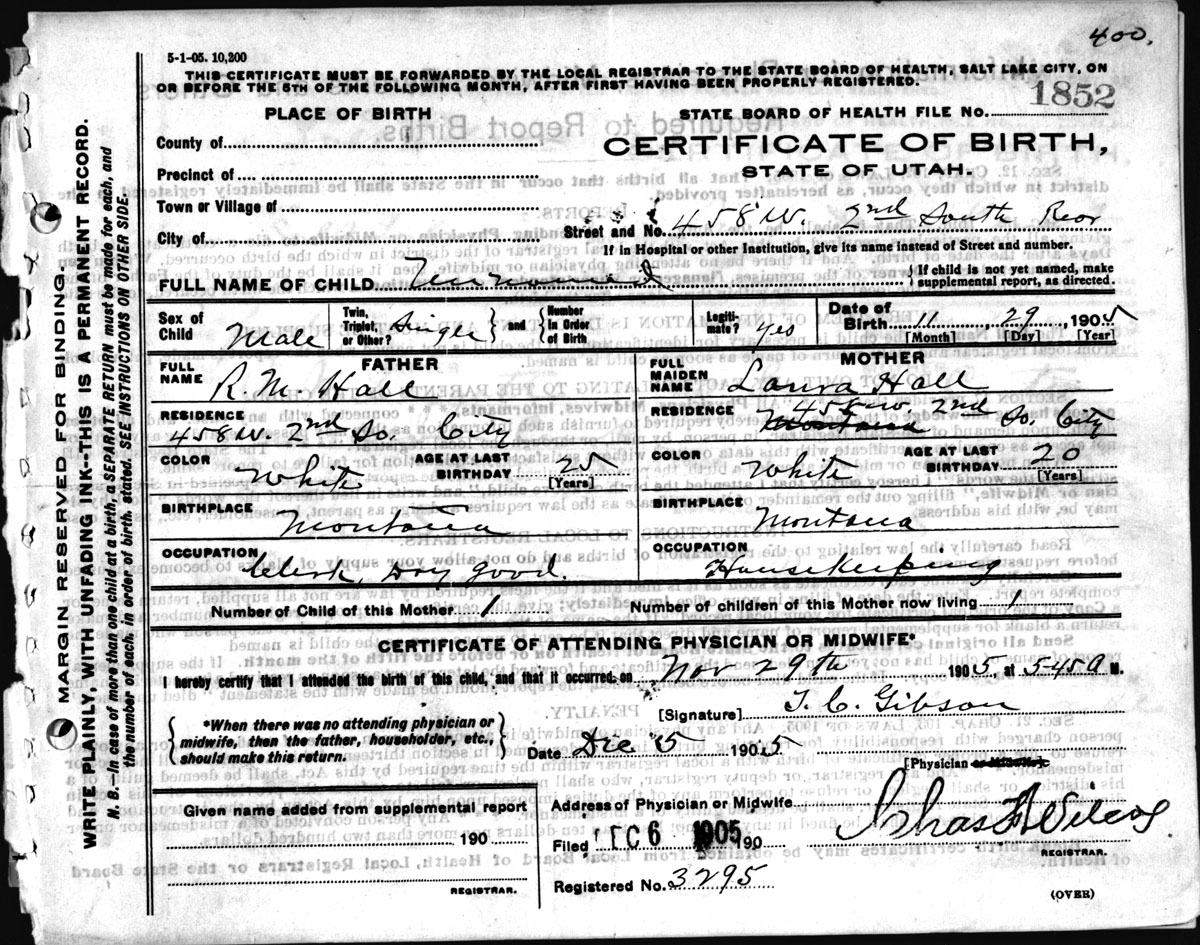 400.
5-1-05. 10,200
THIS CERTIFICATE MUST BE FORWARDED BY THE LOCAL REGISTRAR TO THE STATE BOARD OF HEALTH, SALT LAKE CITY, ON
OR BEFORE THE 5TH OF THE FOLLOWING MONTH, AFTER FIRST HAVING BEEN PROPERLY REGISTERED.
PLACE OF BIRTH
STATE BOARD OF HEALTH FILE NO. 1852
County of
CERTIFICATE OF BIRTH,
Precinct of
STATE OF UTAH.
Town or Village of
City of
Street and No. 458 W. 2nd South Rear
If in Hospital or other Institution, give its name instead of Street and number.
FULL NAME OF CHILD Unnamed
If child is not yet named, make
supplemental report, as directed.
Sex of
Child Male
Twin,
Triplet,
or Other? Single
and
Number
in Order
of Birth
Legiti-
mate? Yes
Date of
Birth 11, 29 1905
[Month] [Day] [Year]
FATHER
FULL
NAME R. M. Hall
RESIDENCE
458 W. 2nd So. City
COLOR White
AGE AT LAST
BIRTHDAY 25
[Years]
BIRTHPLACE
Montana
OCCUPATION
Clerk, Dry Good.
MOTHER
FULL
MAIDEN
NAME Laura Hall
RESIDENCE 458 W 2nd So. City
Montana
COLOR White
AGE AT LAST
BIRTHDAY 20
[Years]
BIRTHPLACE
Montana
OCCUPATION
Housekeeping
Number of Child of this Mother 1
Number of children of this Mother now living 1
CERTIFICATE OF ATTENDING PHYSICIAN OR MIDWIFE*
I hereby certify that I attended the birth of this child, and that it occurred on Nov 29th 1905, at 545 a M.
[Signature] T. C. Gibson
*When there was no attending physician or
midwife, then the father, householder, etc.,
should make this return.
Date Dec 5 1905
[Physician or Midwife.]
Given name added from supplemental report
190
REGISTRAR.
Address of Physician or Midwife
Filed DEC 6 1905 190
Chas F Wilcox
REGISTRAR.
Registered No. 3295
(OVER)
MARGIN RESERVED FOR BINDING.
WRITE PLAINLY, WITH UNFADING INK--THIS IS A PERMANENT RECORD.
N. B.--In case of more than one child at a birth, a SEPARATE RETURN must be made for each, and
the number of each, in order of birth, stated. SEE INSTRUCTIONS ON OTHER SIDE.